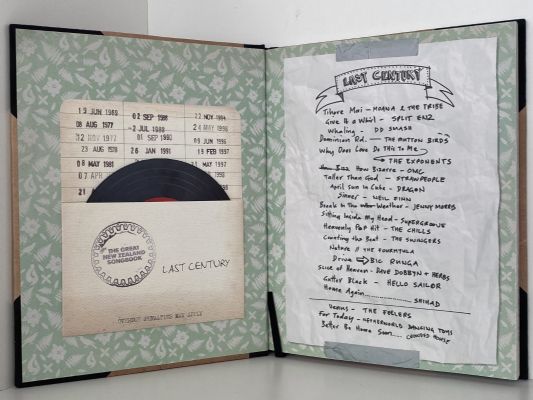 13 JUN 1989 02 SEP 1988 22 NOV 1994
08 AUG 1977 2 JUL 1988 24 MAY 1996
32 NOV 1977 01 SEP 1990 09 JUN 1996
23 AUG 1978 26 JAN 1991 19 FEB 1997
08 MAY 1981 1997
07 APR
THE GREAT
NEW ZEALAND
SONGBOOK
LAST CENTURY
OVERDUE PENALTIES MAY APPLY
LAST CENTURY
Tihore Mai - MOANA & THE TRIBE
Give It a Whirl - SPLIT ENZ
Whaling - DD SMASH
Dominion Rd. - THE MUTTON BIRDS
Why Does Love Do This To Me
→ THE EXPONENTS
How Bizarre - OMC
Taller Than God - STRAWPEOPLE
April Sun in Cuba - DRAGON
Sinner - NEIL FINN
Break In The Weather - JENNY MORRIS
Sitting Inside My Head - SUPERGROOVE
Heavenly Pop Hit - THE CHILLS
Counting the Beat - THE SWINGERS
Nature // THE FOURMYULA
Drive ⇨ BIC RUNGA
Slice of Heaven - DAVE DOBBYN + HERBS
Gutter Black - HELLO SAILOR
Home Again................ SHIHAD
Venus - THE FEELERS
For Today - NETHERWORLD DANCING TOYS
Better Be Home Soon.... CROWDED HOUSE